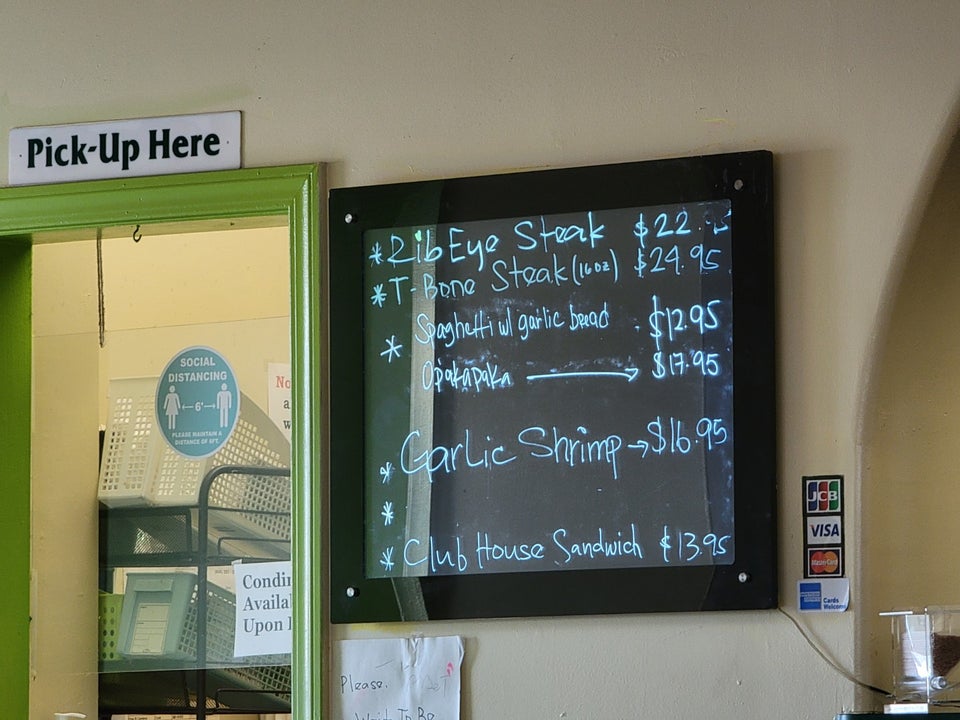 Pick-Up Here
* Rib Eye Steak $22.
* T-Bone Steak (16oz) $24.95
* Spaghetti w/ garlic bread $12.95
Opakapaka → $17.95
* Garlic Shrimp → $16.95
*
* Club House Sandwich $13.95
SOCIAL
DISTANCING
6'
PLEASE MAINTAIN A
DISTANCE OF 6FT.
No
a
w
Condi
Availa
Upon
JCB
VISA
MasterCard
Cards
Welcome
Please.
Wait To Be